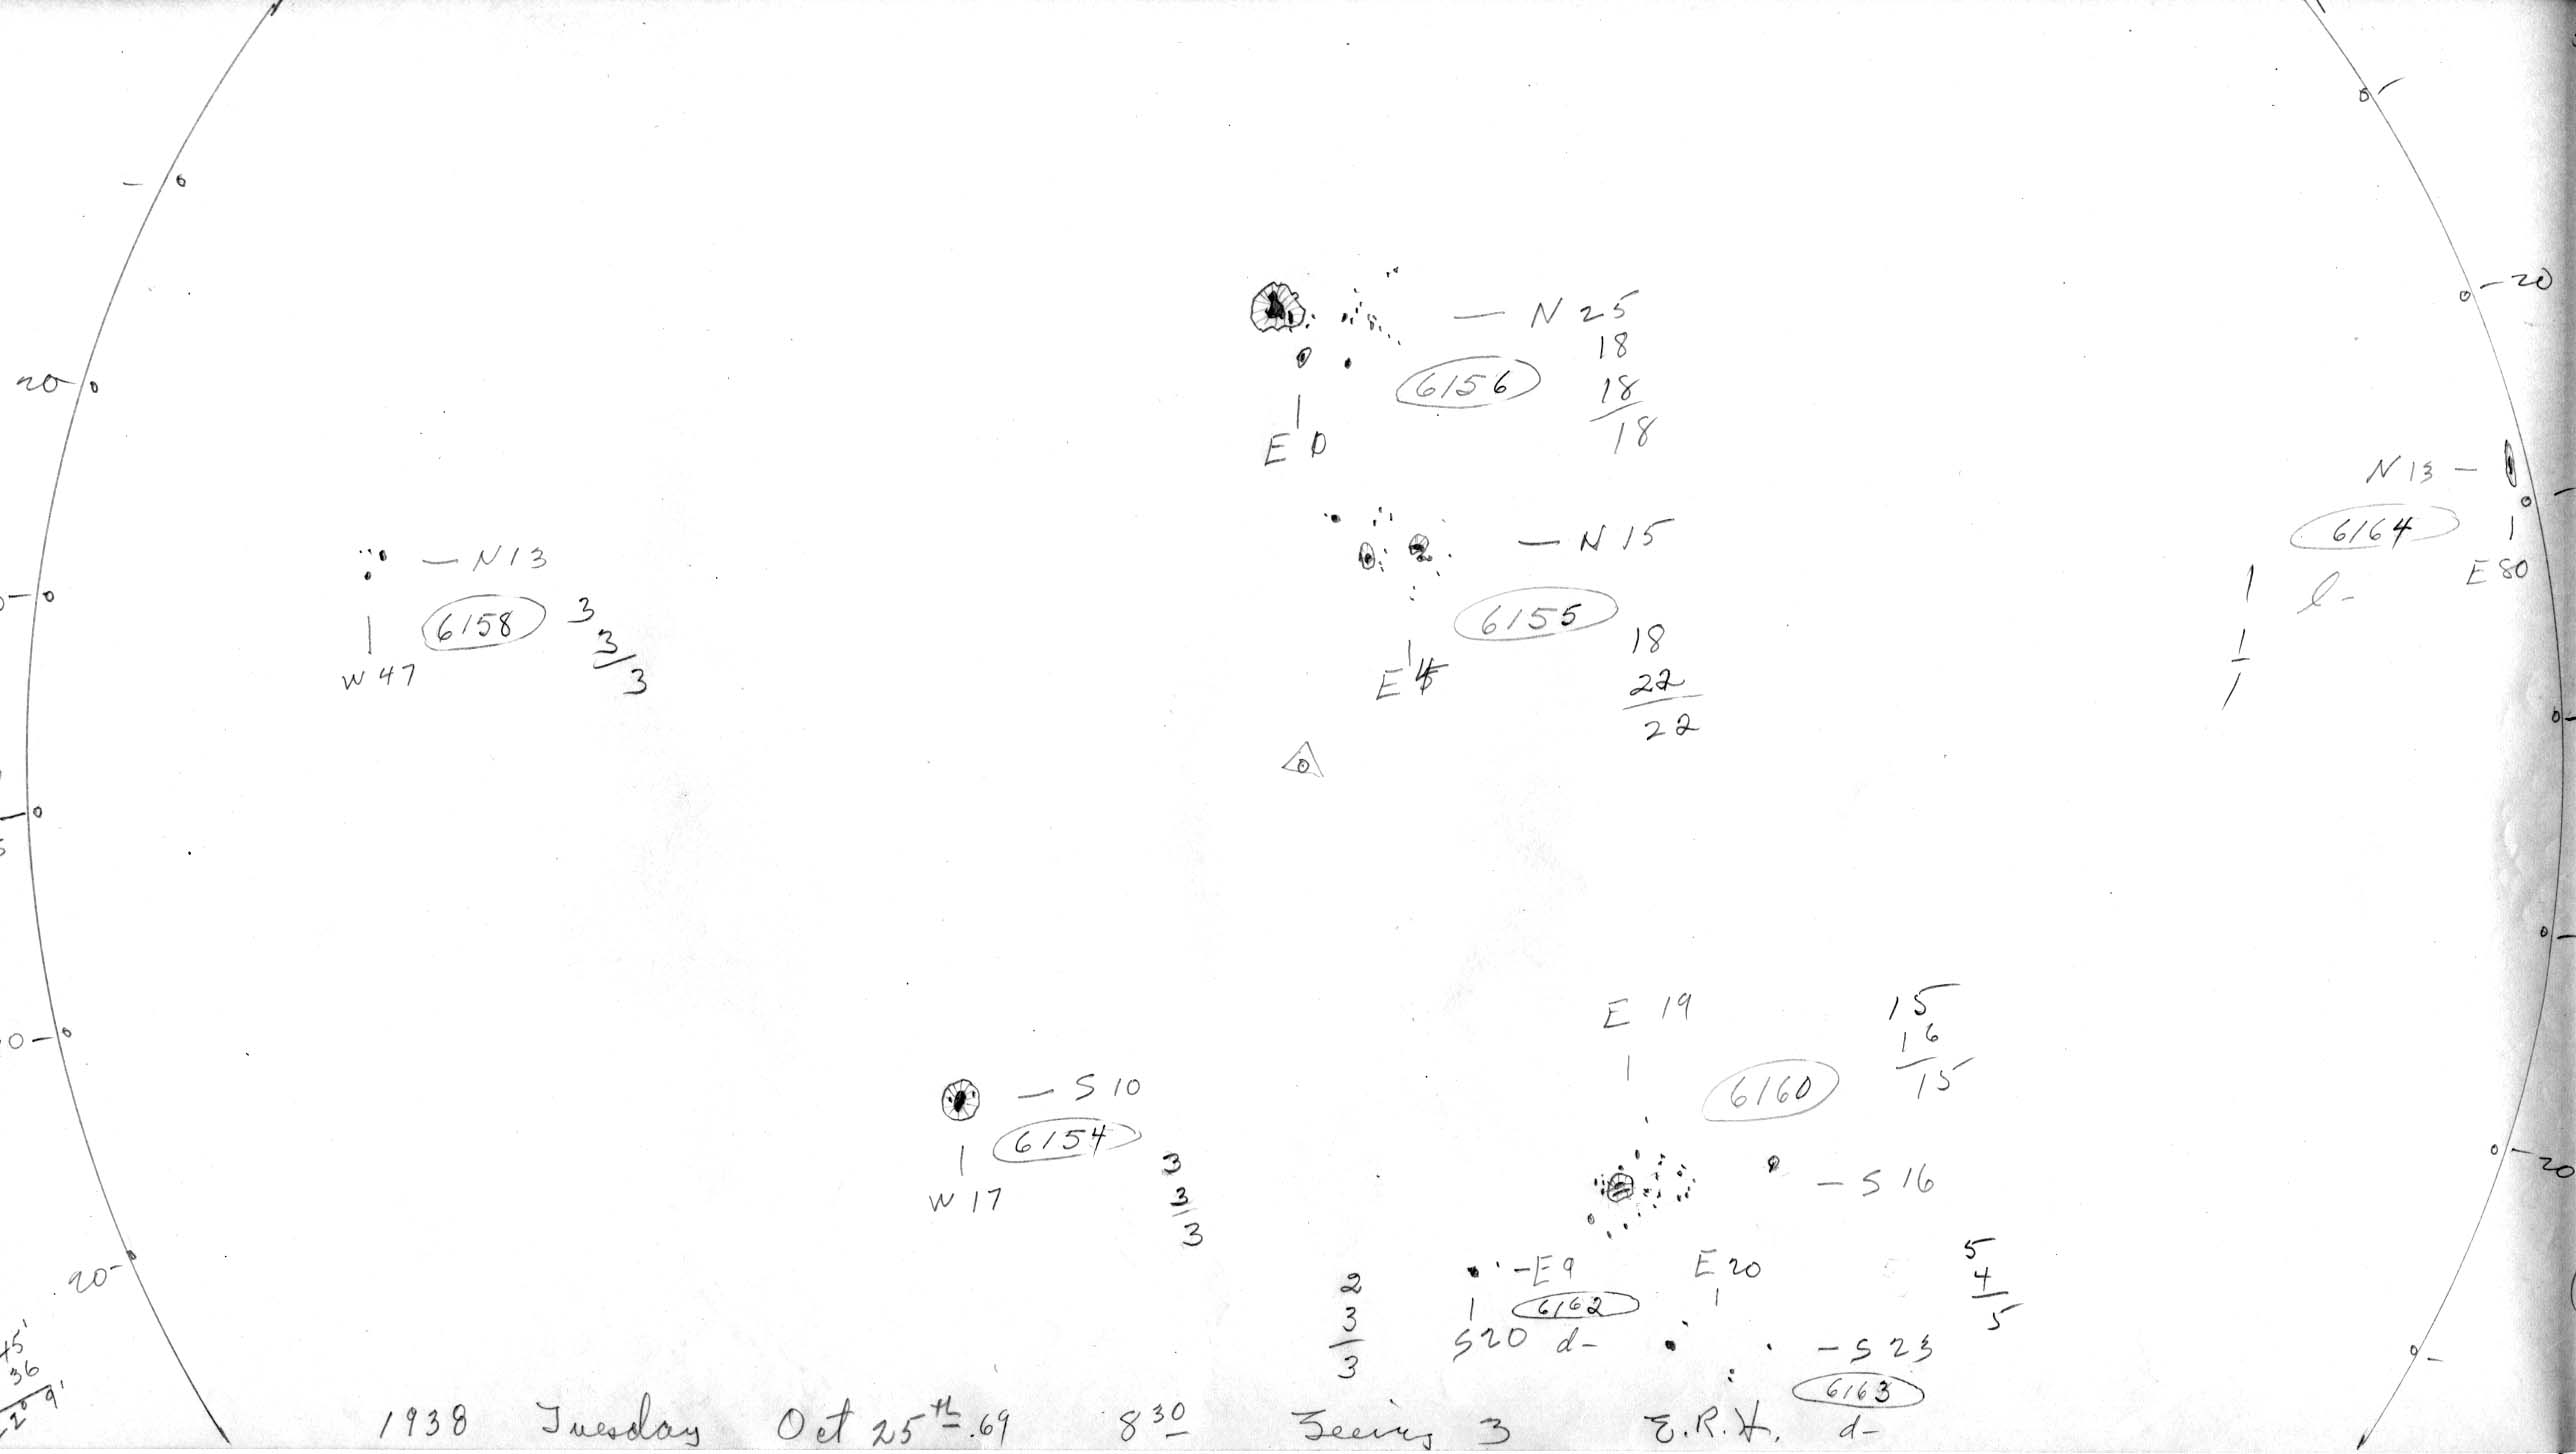 20
- N 25
18
18
18
6156
E 0
- 20
N 13 -
6164
E 80
l -
1
1
1
- N 13
6158
3
3
3
W 47
- N 15
6155
18
22
22
E 4
E 19
15
16
15
6160
- S 16
- S 10
6154
W 17
3
3
3
- 20
20 -
- E 9
6162
S 20 d -
2
3
3
E 20
5
4
5
- S 23
6163
d -
45'
36
2° 9'
1938 Tuesday Oct 25th .69 8 30 Seeing 3 E.R.H.